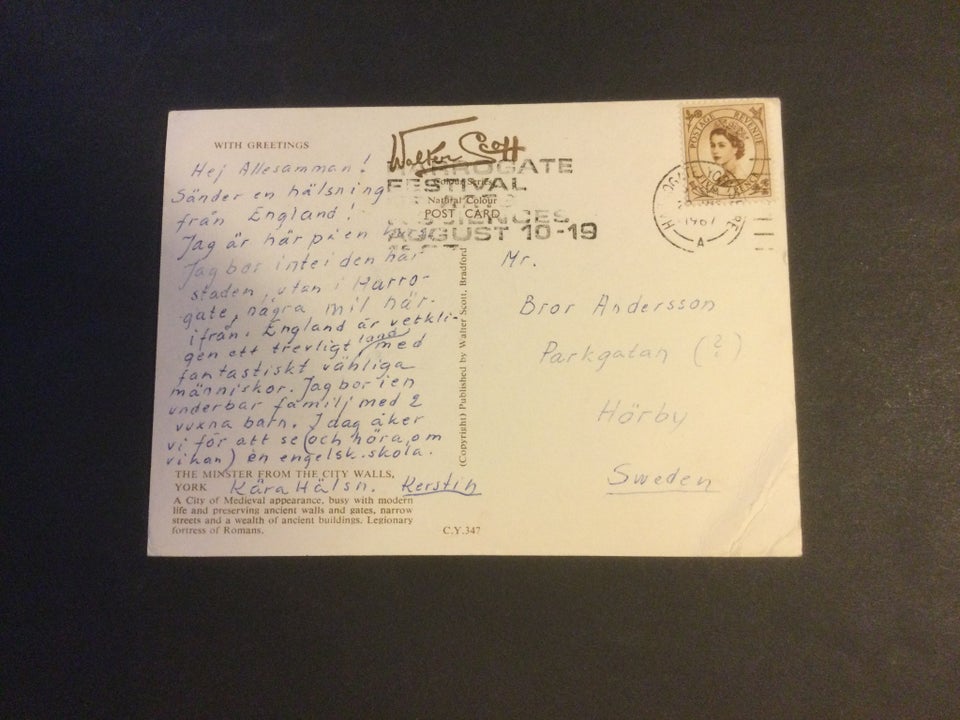 WITH GREETINGS
Hej Allesamman!
Sänder en hälsning
från England!
Jag är här på en
Jag bor inte i den här
staden, utan i Harro-
gate, några mil här-
ifrån. England är verkli-
gen ett trevligt land med
fantastiskt vänliga
människor. Jag bor i en
underbar familj med 2
vuxna barn. I dag åker
vi för att se (och höra, om
vi kan) en engelsk skola.
Kära Hälsn. Kerstin
THE MINSTER FROM THE CITY WALLS,
YORK
A City of Medieval appearance, busy with modern
life and preserving ancient walls and gates, narrow
streets and a wealth of ancient buildings. Legionary
fortress of Romans.
C.Y.347
Walter Scott
Colour Series
Natural Colour
POST CARD
HARROGATE
FESTIVAL
SCIENCES
AUGUST 10-19
(Copyright) Published by Walter Scott, Bradford
POSTAGE REVENUE
1967
A
Mr.
Bror Andersson
Parkgatan (?)
Hörby
Sweden